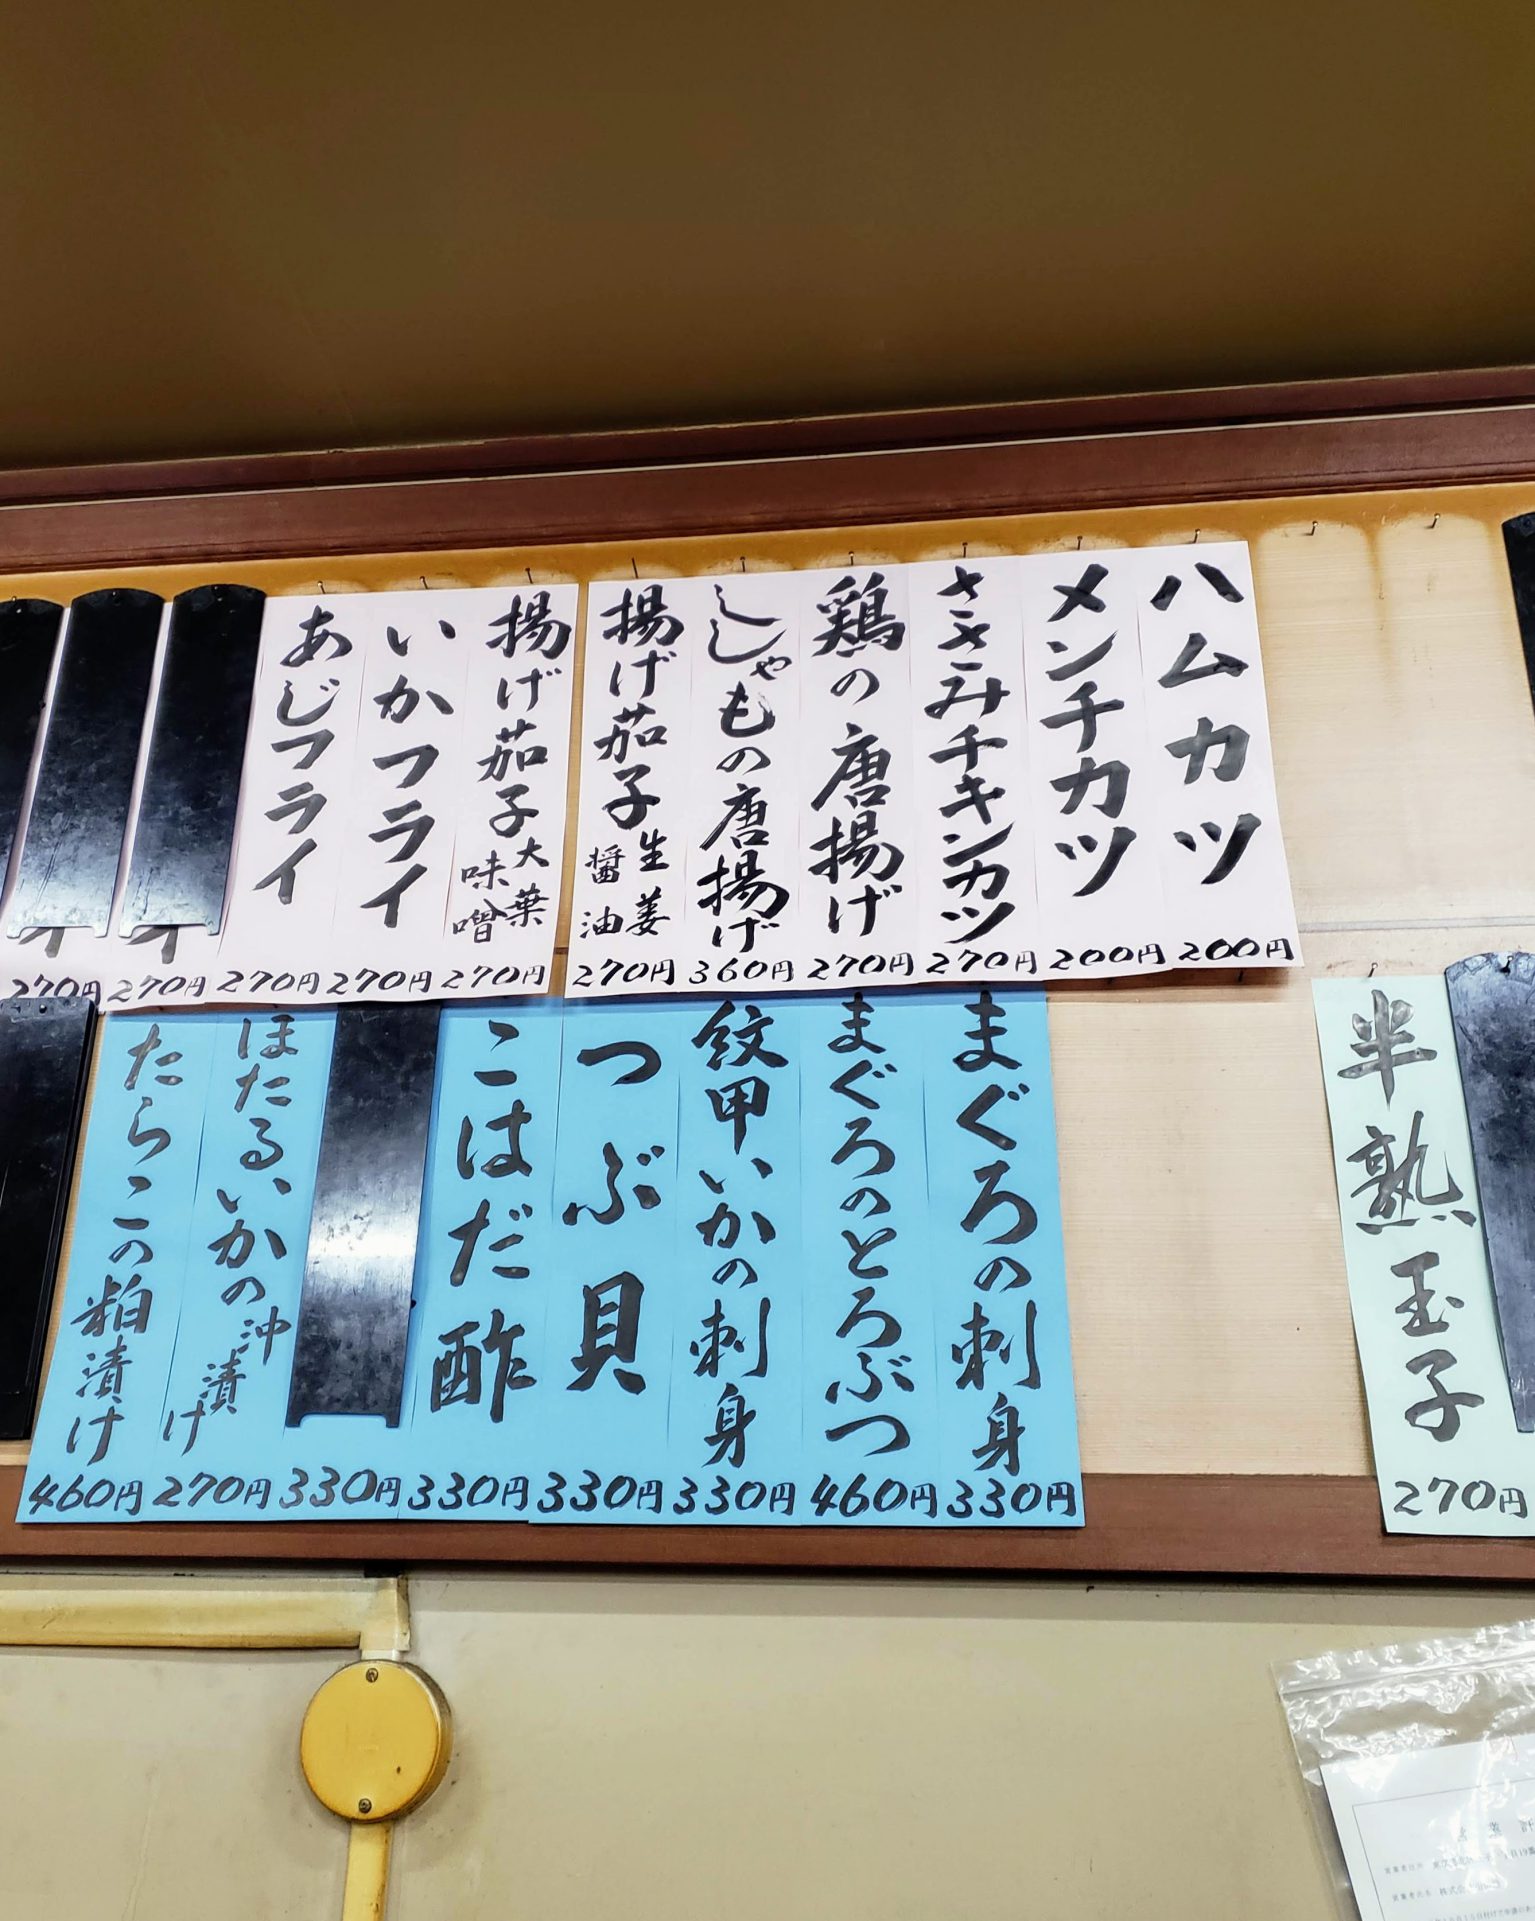 ハムカツ
200円
メンチカツ
200円
ささみチキンカツ
270円
鶏の唐揚げ
270円
ししゃもの唐揚げ
360円
揚げ茄子
生姜
醤油
270円
揚げ茄子
大葉
味噌
270円
いかフライ
270円
あじフライ
270円
イ
270円
イ
270円
半熟玉子
270円
まぐろの刺身
330円
まぐろのとろぶつ
460円
紋甲いかの刺身
330円
つぶ貝
330円
こはだ酢
330円
330円
ほたるいかの沖漬け
270円
たらこの粕漬け
460円